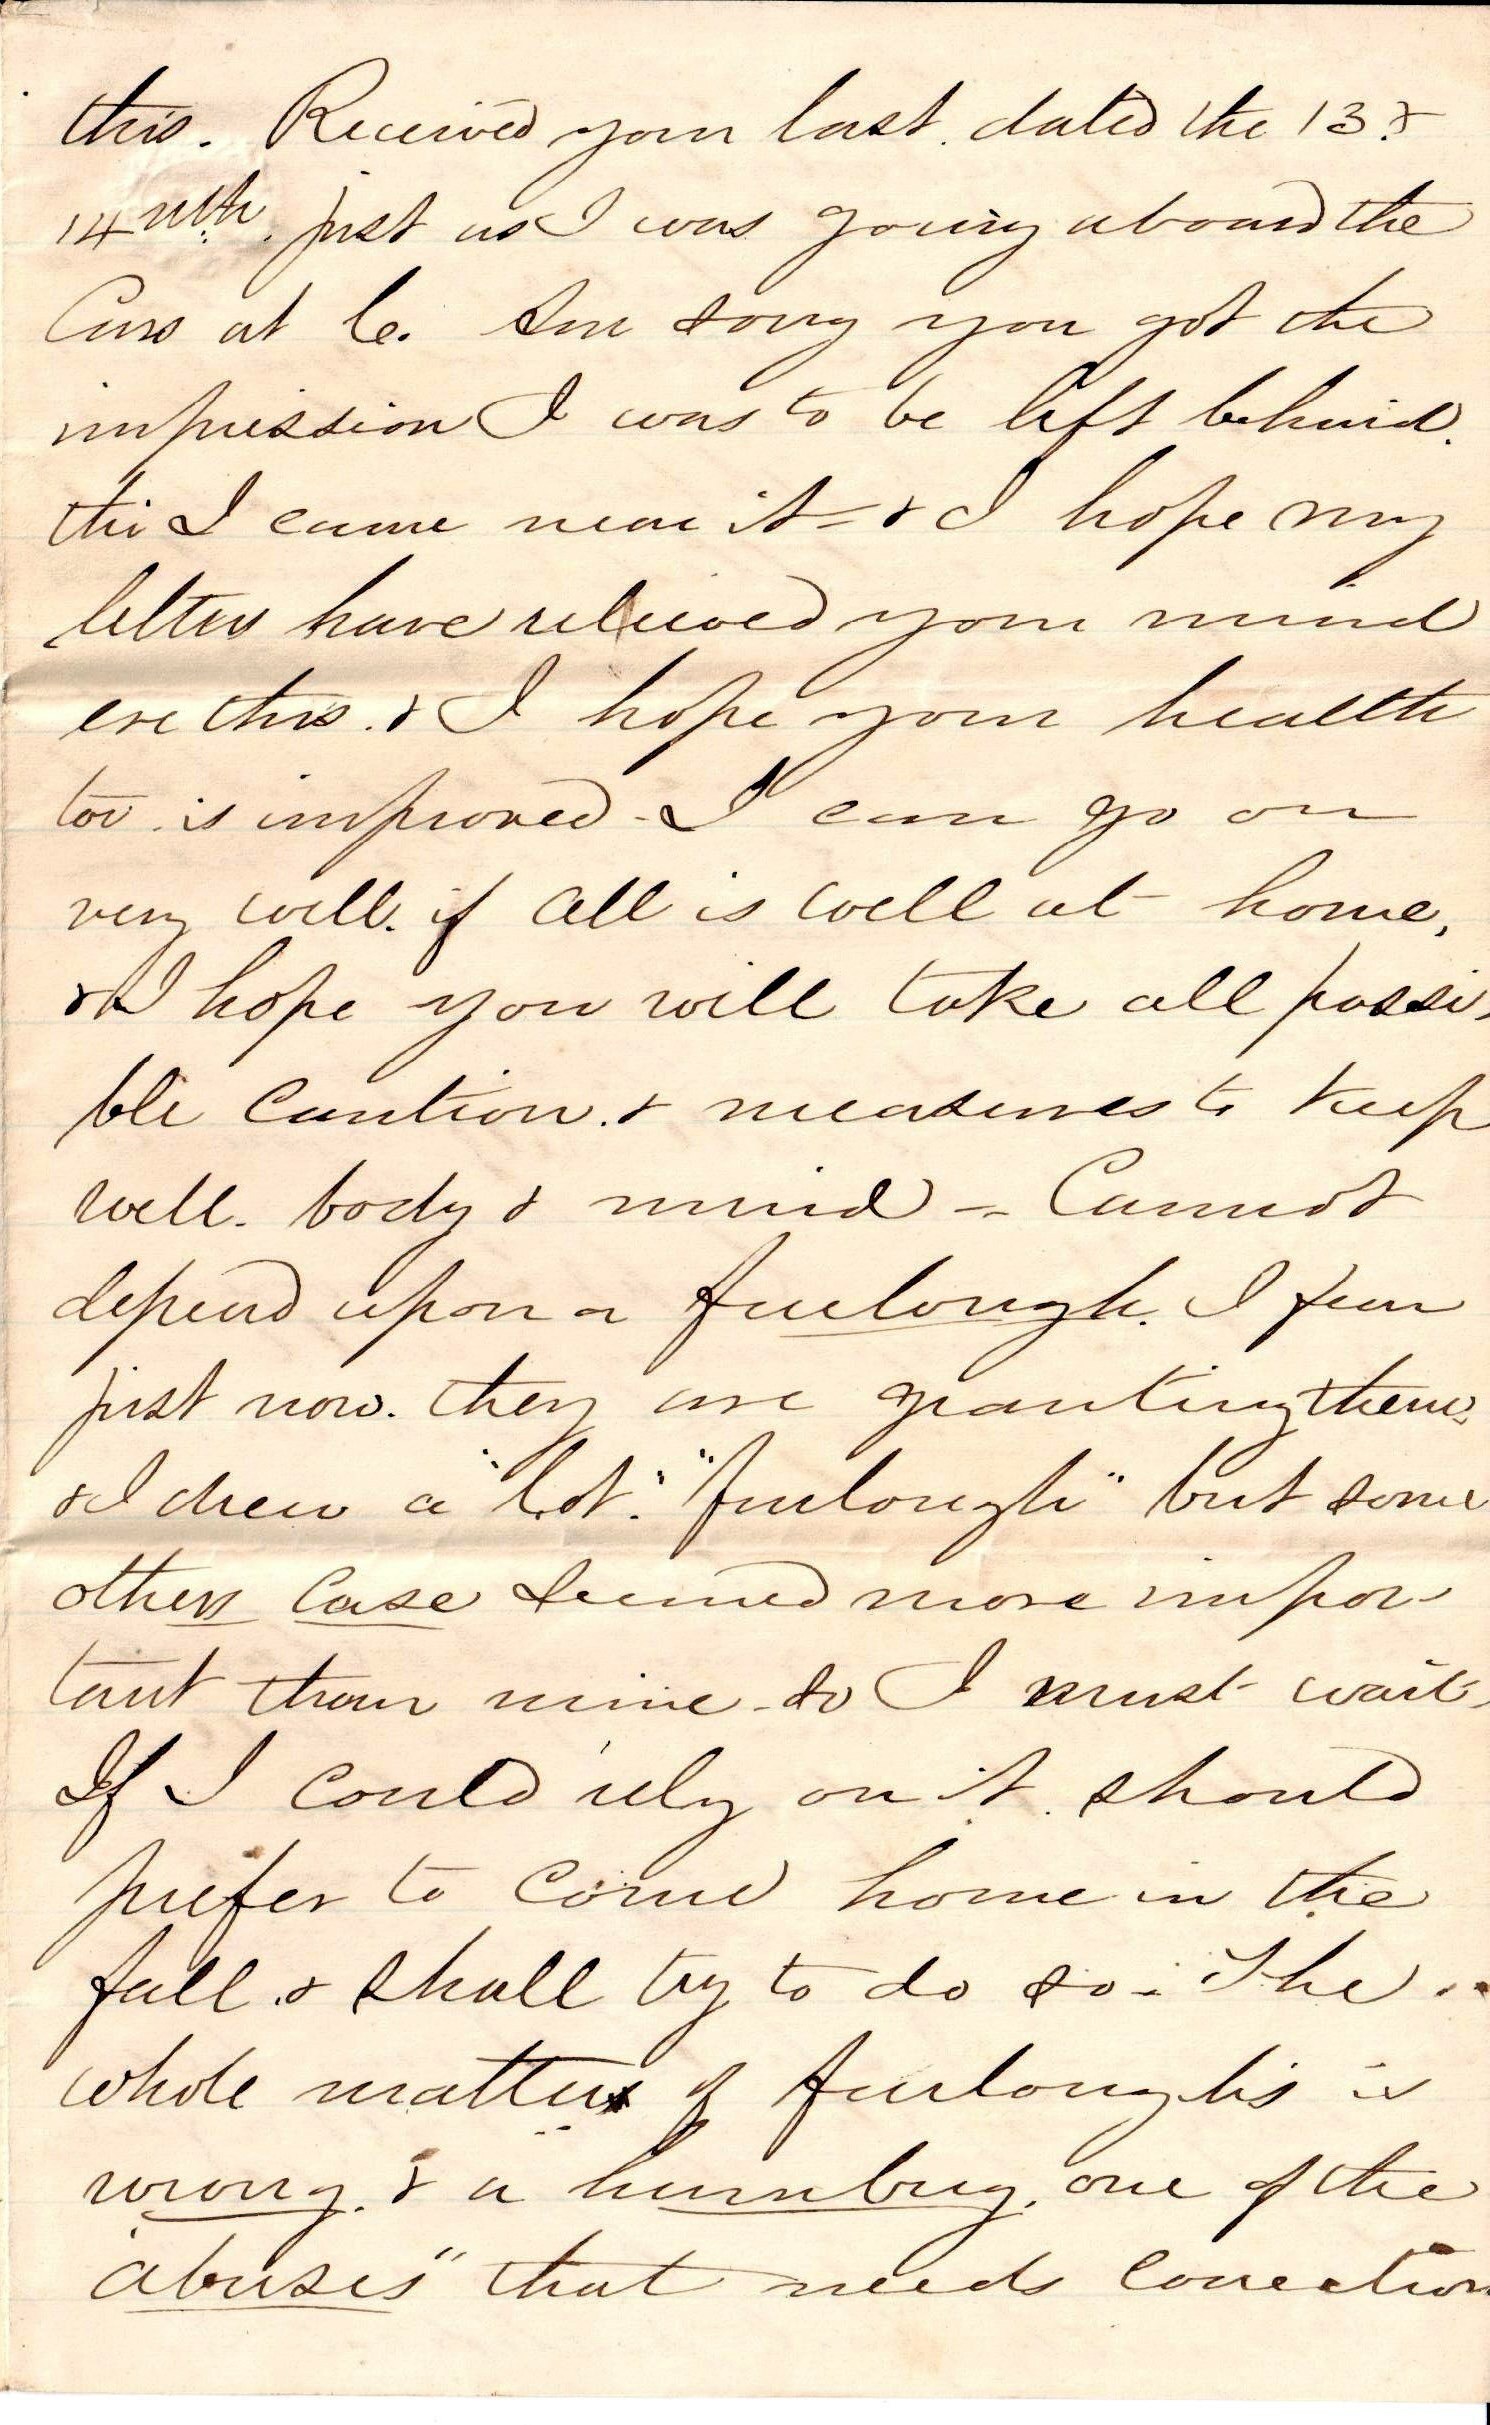 this. Received your last. dated the 13. &
14 ulth. just as I was going aboard the
Cars at C. Am sorry you got the
impression I was to be left behind.
tho I came near it - & I hope my
letters have relieved your mind
ere this. & I hope your health
too. is improved - I can go on
very well. if all is well at home,
& I hope you will take all possi-
ble caution. & measures to keep
well. body & mind - Cannot
depend upon a furlough. I fear
just now. they are granting them.
& I drew a "lot". "furlough" but some
others case seemed more impor-
tant than mine - so I must wait,
If I could rely on it. should
prefer to come home in the
fall. & shall try to do so - The
whole matter of furloughs is
wrong. & a humbug. one of the
"abuses" that needs correction